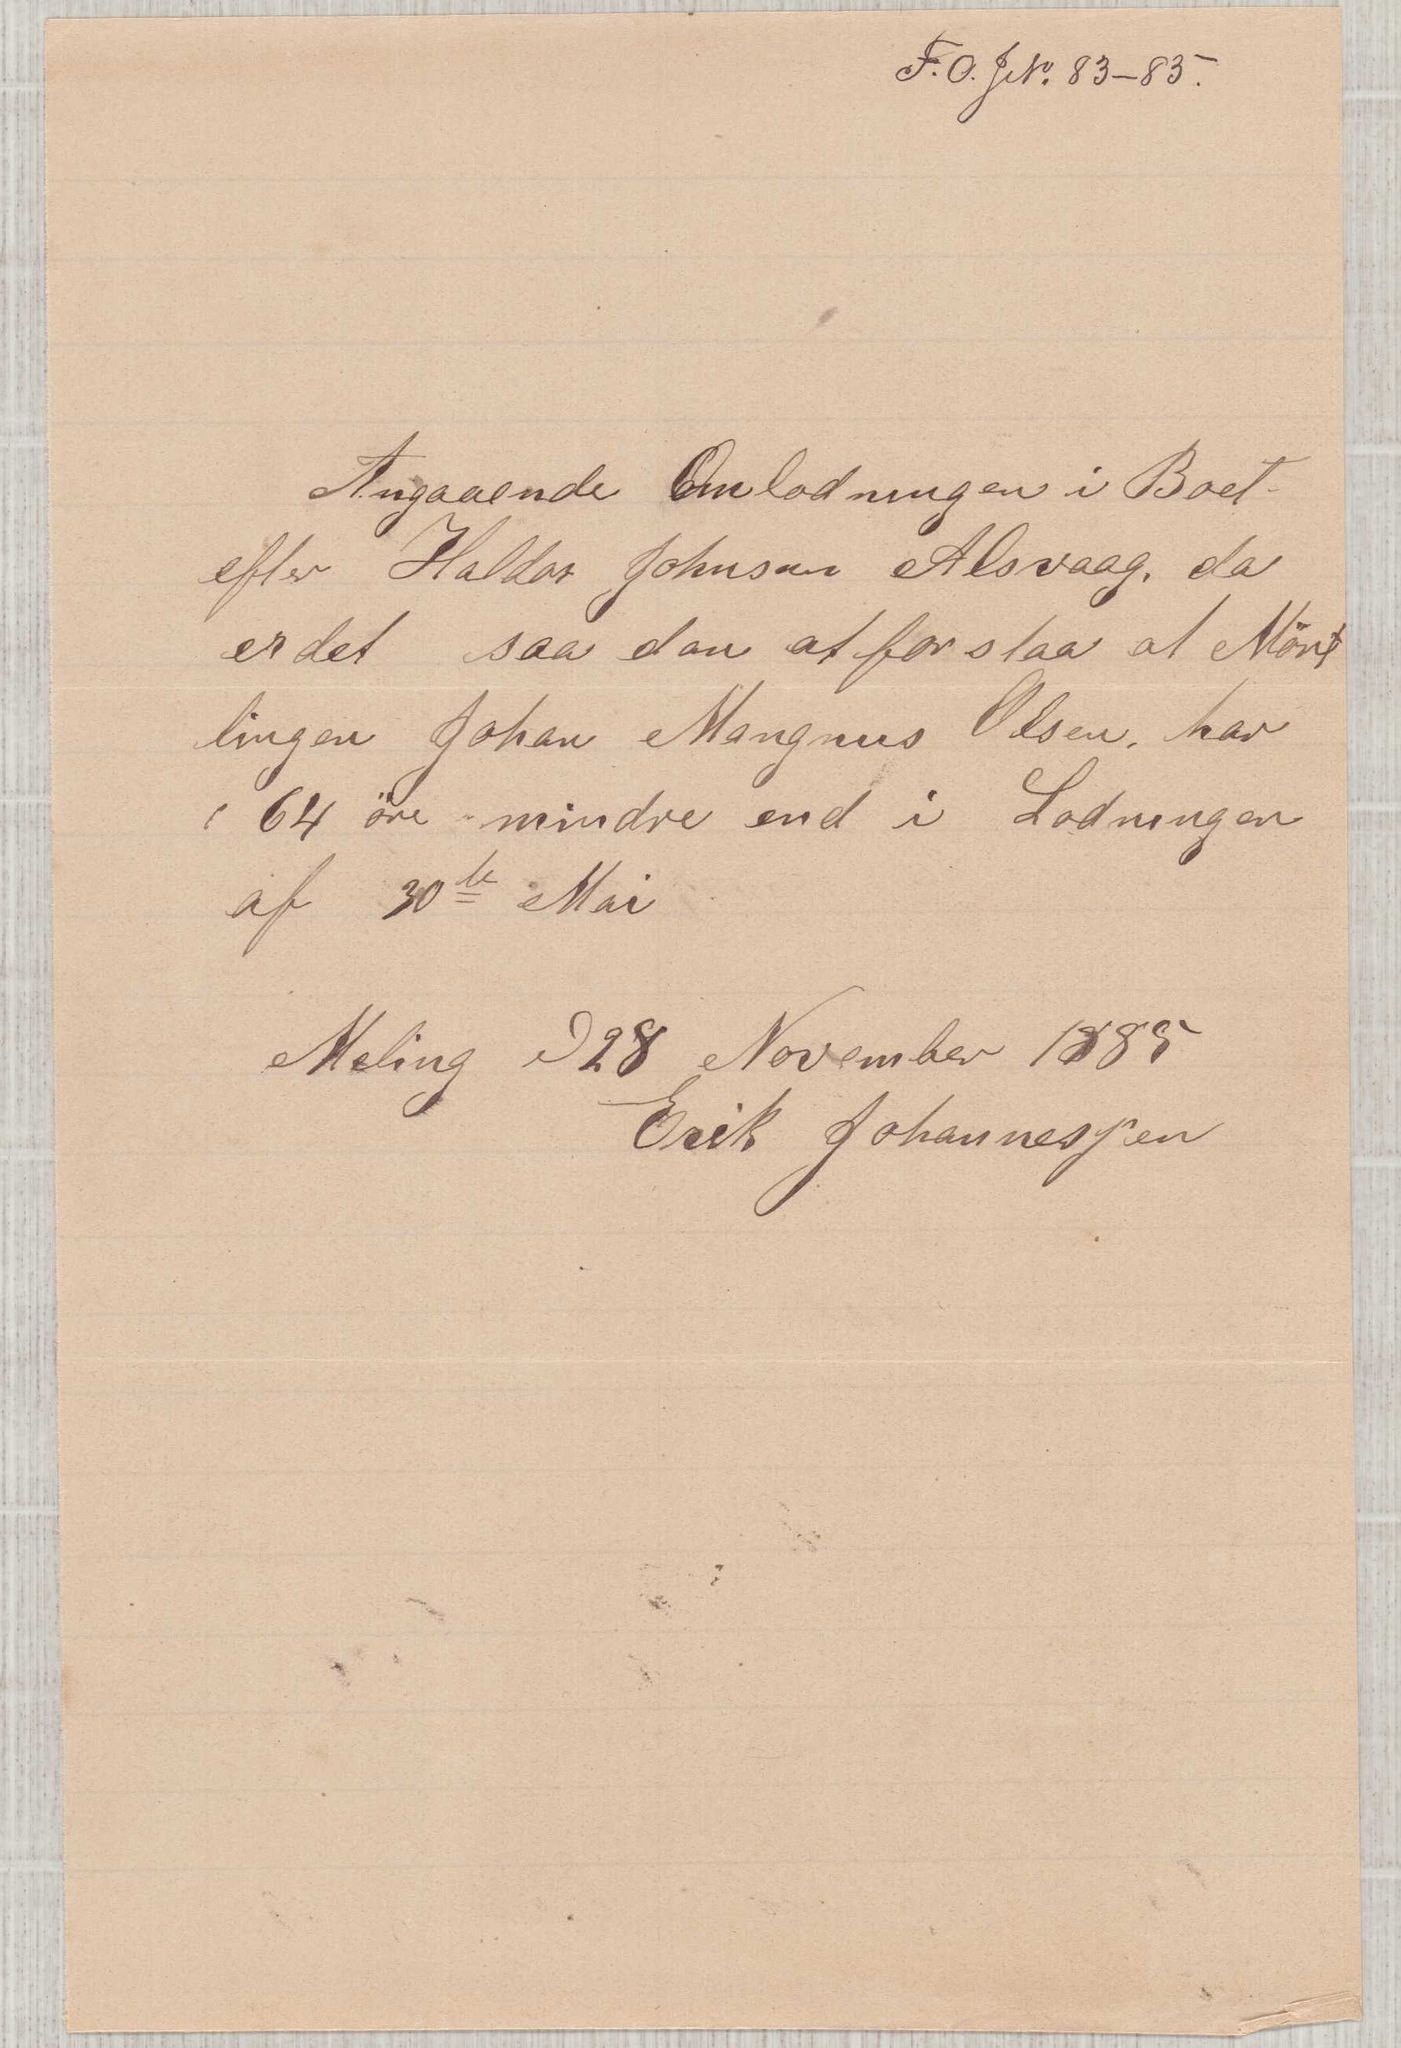 F. O. J№. 83–85.
Angaaende Omlodningen i Boet
efter Haldor Johnsen Alsvaag. da
er det saa dan at forstaa at Mönt
lingen Johan Mangnus Olsen. har
64 öre mindre end i Lodningen
af 30te Mai
Meling D 28 November 1885
Erik Johannessen